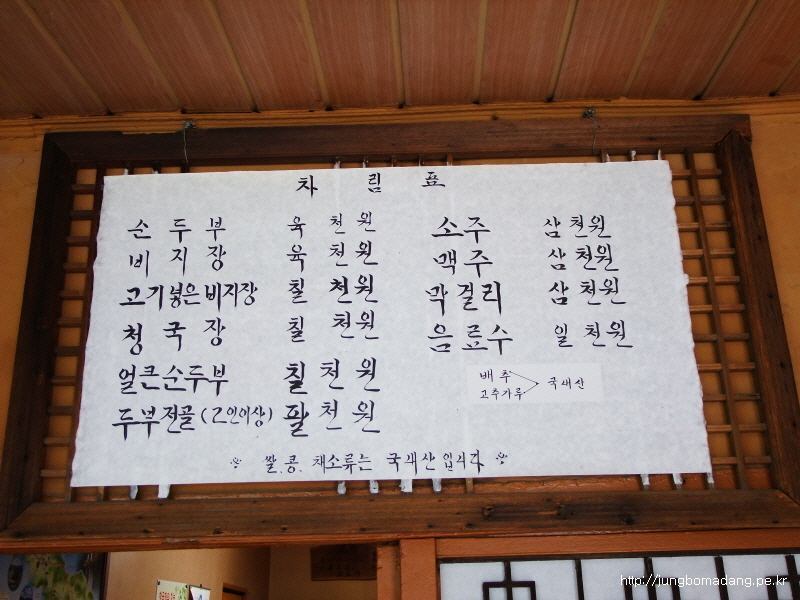 차림표
순두부 육천원
비지장 육천원
고기넣은비지장 칠천원
청국장 칠천원
얼큰순두부 칠천원
두부전골(2인이상) 팔천원
소주 삼천원
맥주 삼천원
막걸리 삼천원
음료수 일천원
배추
고추가루
국내산
※ 쌀.콩.채소류는 국내산입니다 ※
http://jungbomadang.pe.kr